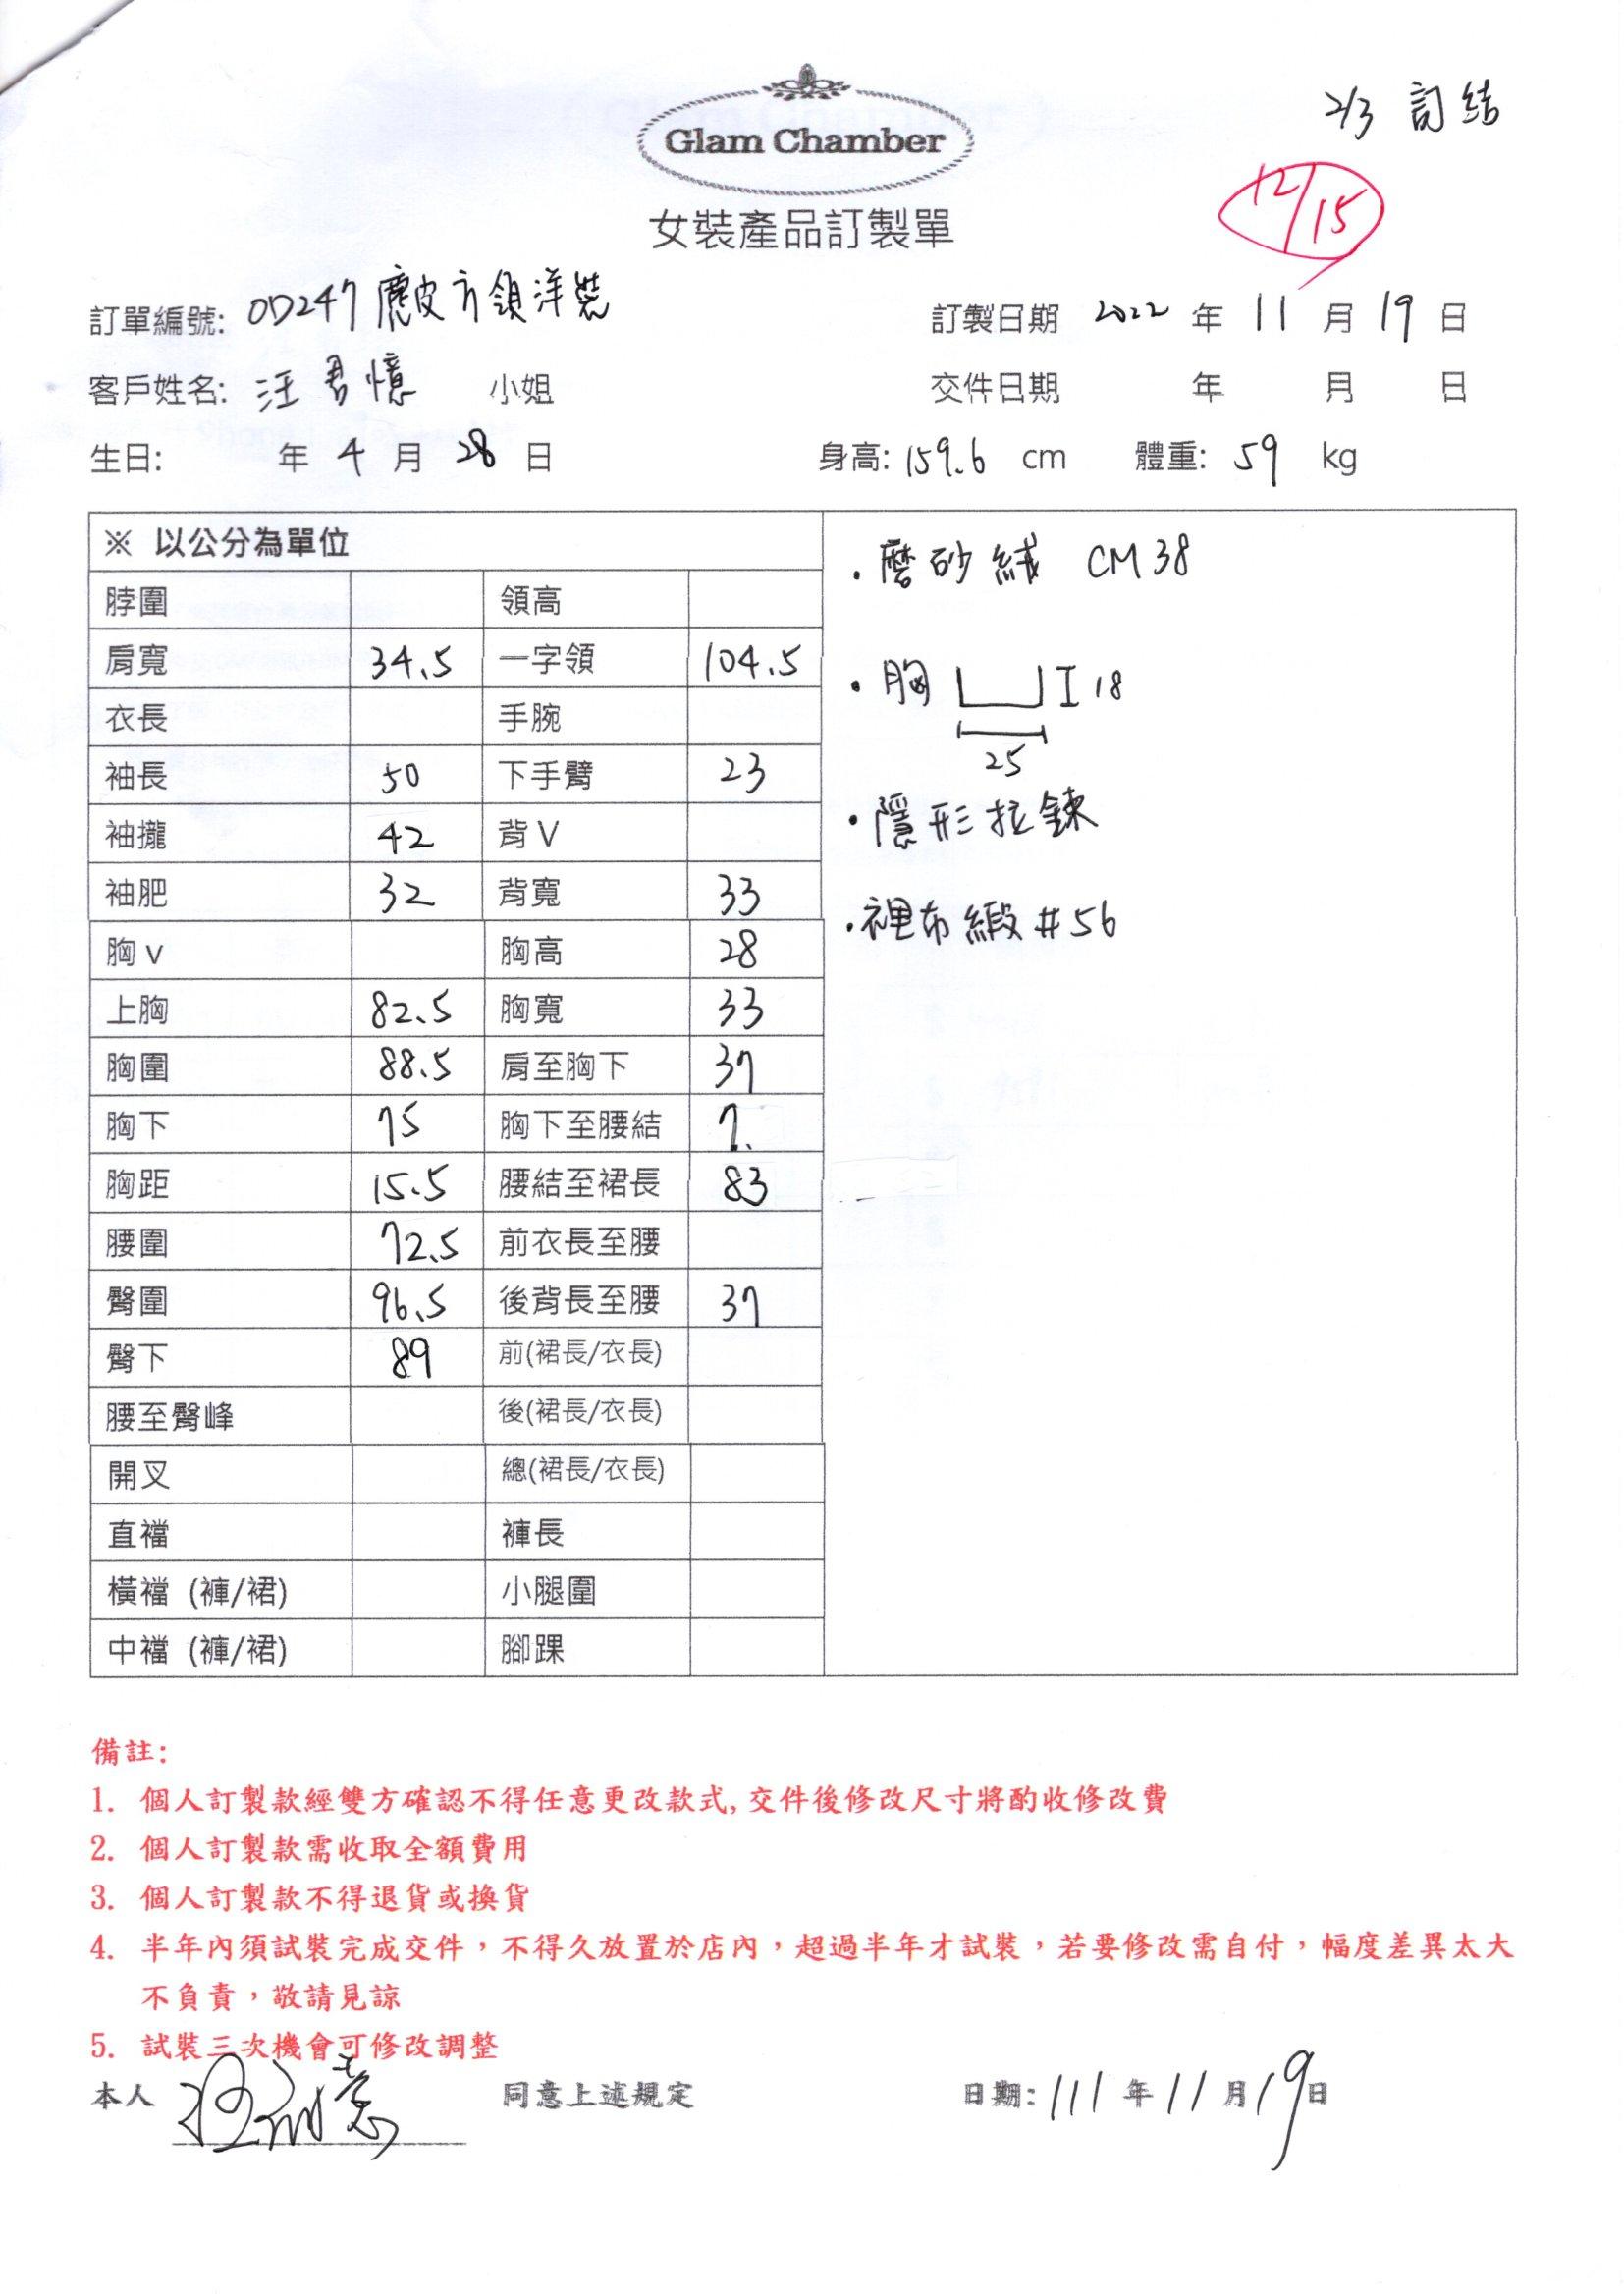 Glam Chamber
2/3 訂結
12/15
女裝產品訂製單
訂單編號: OD247 麂皮方領洋裝
訂製日期 2022 年 11 月 19 日
客戶姓名: 汪君憶 小姐
交件日期 年 月 日
生日: 年 4 月 28 日 身高: 159.6 cm 體重: 59 kg
※ 以公分為單位
脖圍 領高
肩寬 34.5 一字領 104.5
衣長 手腕
袖長 50 下手臂 23
袖攏 42 背V
袖肥 32 背寬 33
胸v 胸高 28
上胸 82.5 胸寬 33
胸圍 88.5 肩至胸下 37
胸下 75 胸下至腰結 7.
胸距 15.5 腰結至裙長 83
腰圍 72.5 前衣長至腰
臀圍 96.5 後背長至腰 37
臀下 89 前(裙長/衣長)
腰至臀峰 後(裙長/衣長)
開叉 總(裙長/衣長)
直襠 褲長
橫襠 (褲/裙) 小腿圍
中襠 (褲/裙) 腳踝
・磨砂絨 CM38
・胸 18
25
・隱形拉鍊
・裡布緞#56
備註:
1. 個人訂製款經雙方確認不得任意更改款式,交件後修改尺寸將酌收修改費
2. 個人訂製款需收取全額費用
3. 個人訂製款不得退貨或換貨
4. 半年內須試裝完成交件，不得久放置於店內，超過半年才試裝，若要修改需自付，幅度差異太大
不負責，敬請見諒
5. 試裝三次機會可修改調整
本人 同意上述規定 日期: 111 年 11 月 19 日